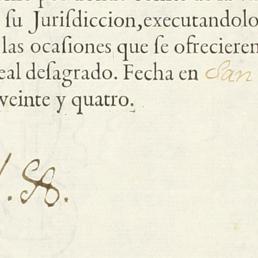 su Jurisdiccion, executandolo
las ocasiones que se ofrecieren
eal desagrado. Fecha en San
veinte y quatro.